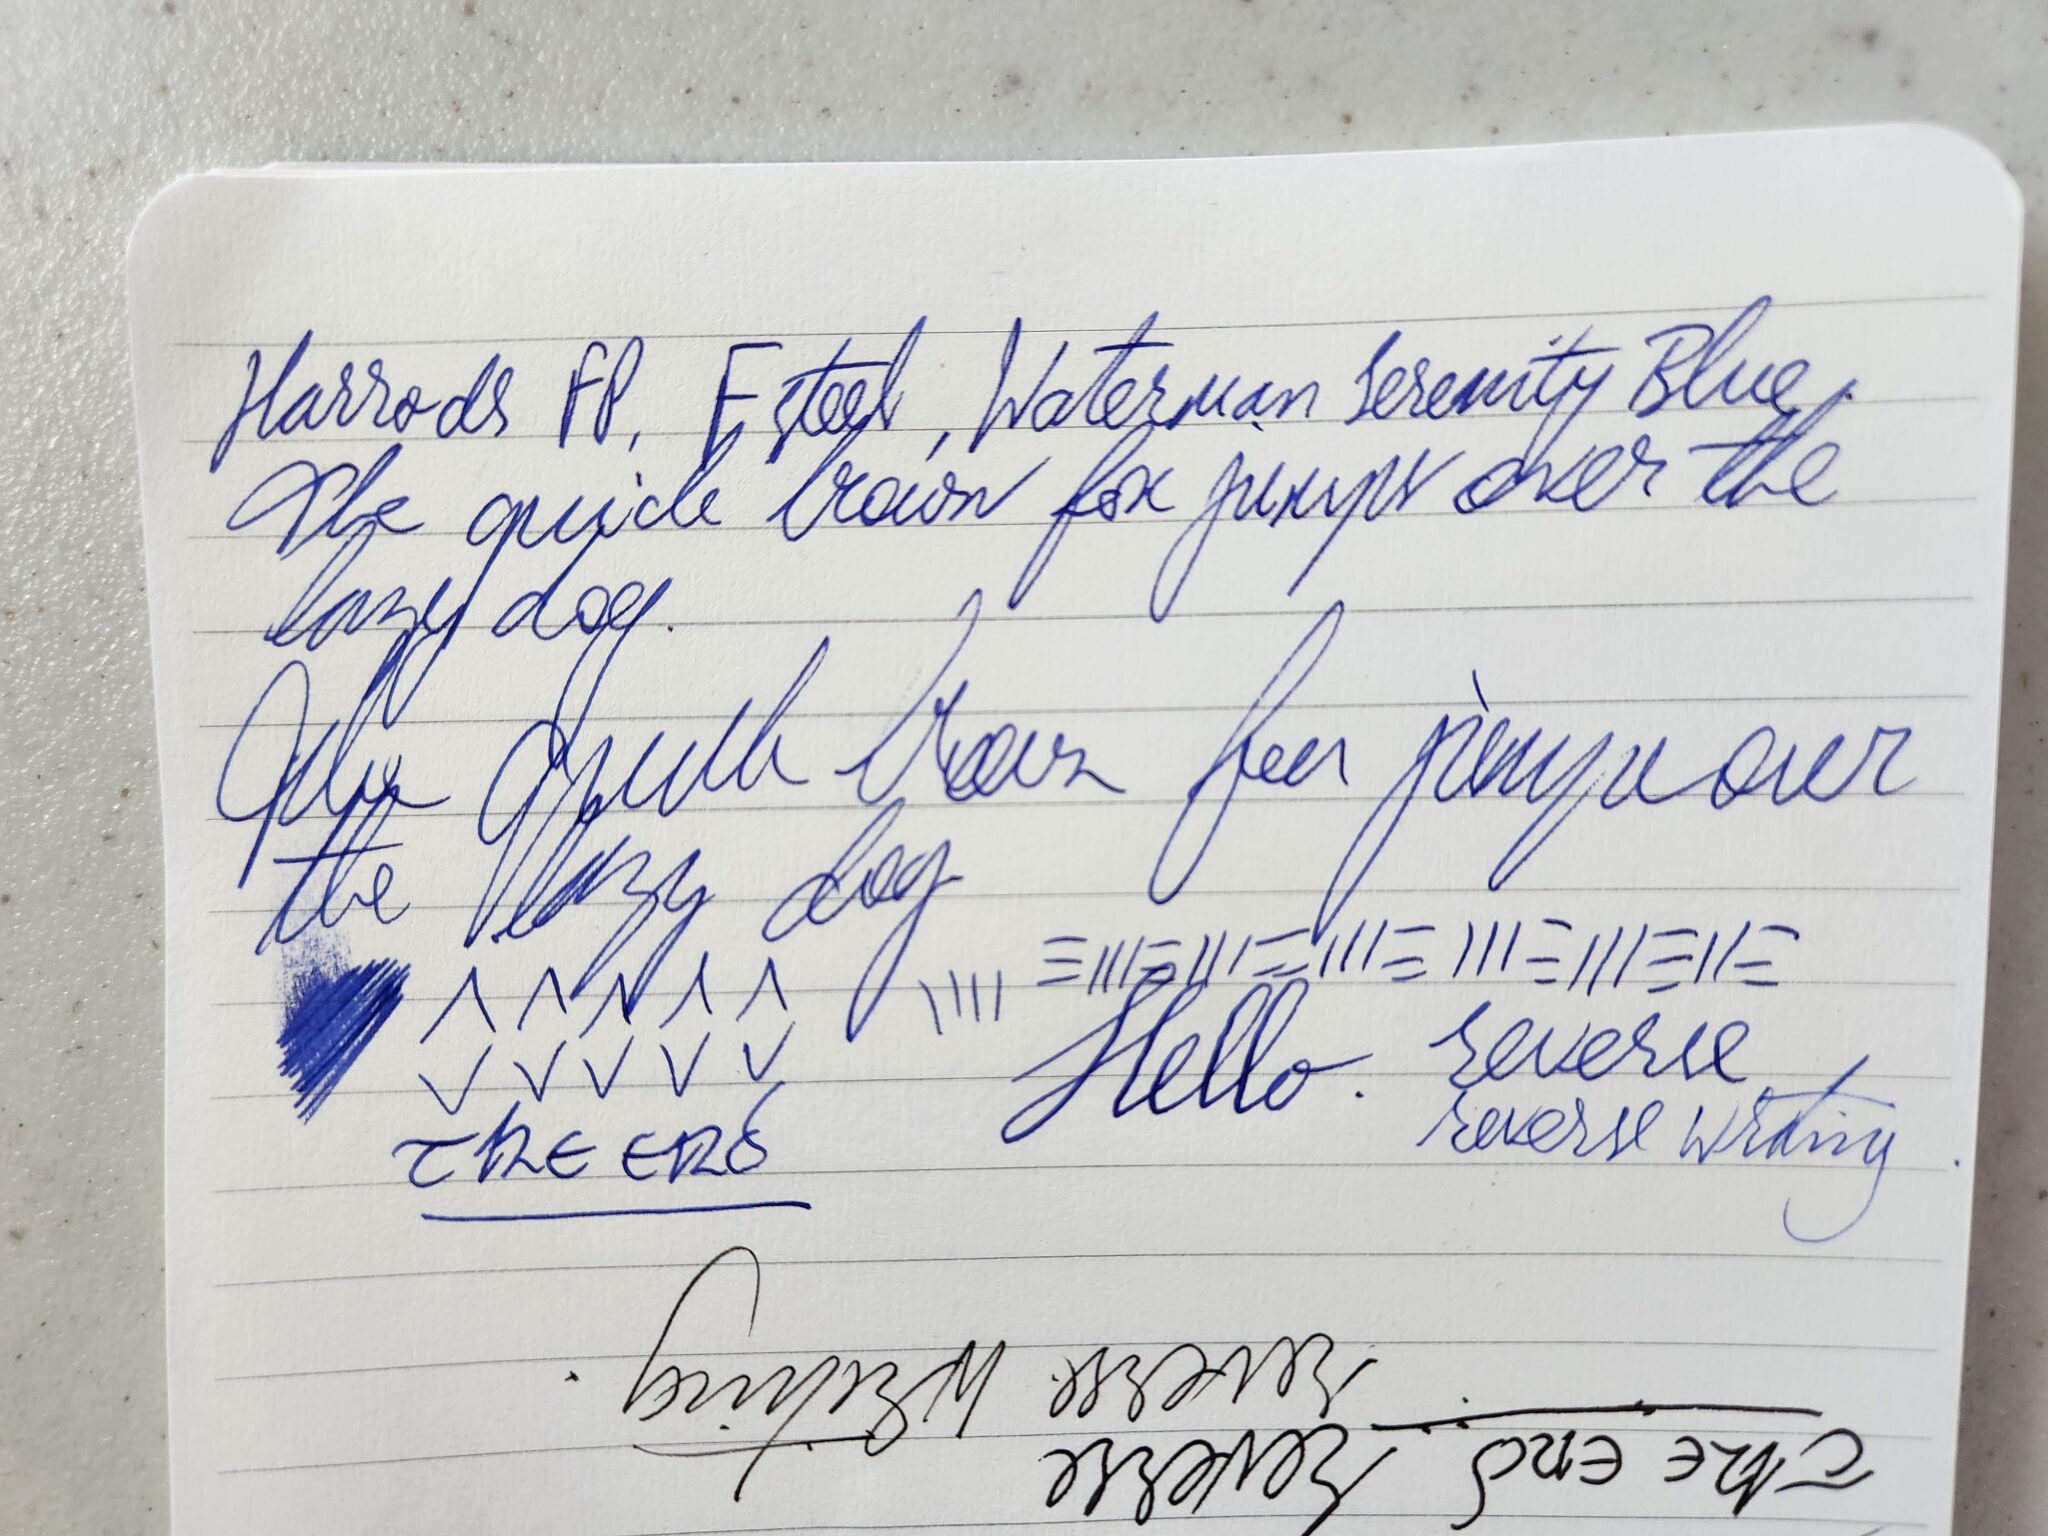 Harrods FP, F steel, Waterman Serenity Blue.
The quick brown fox jumps over the
lazy dog.
The quick brown fox jumps over
the lazy dog
Hello. reverse
reverse writing.
THE END
Reverse Writing.
THE END Reverse